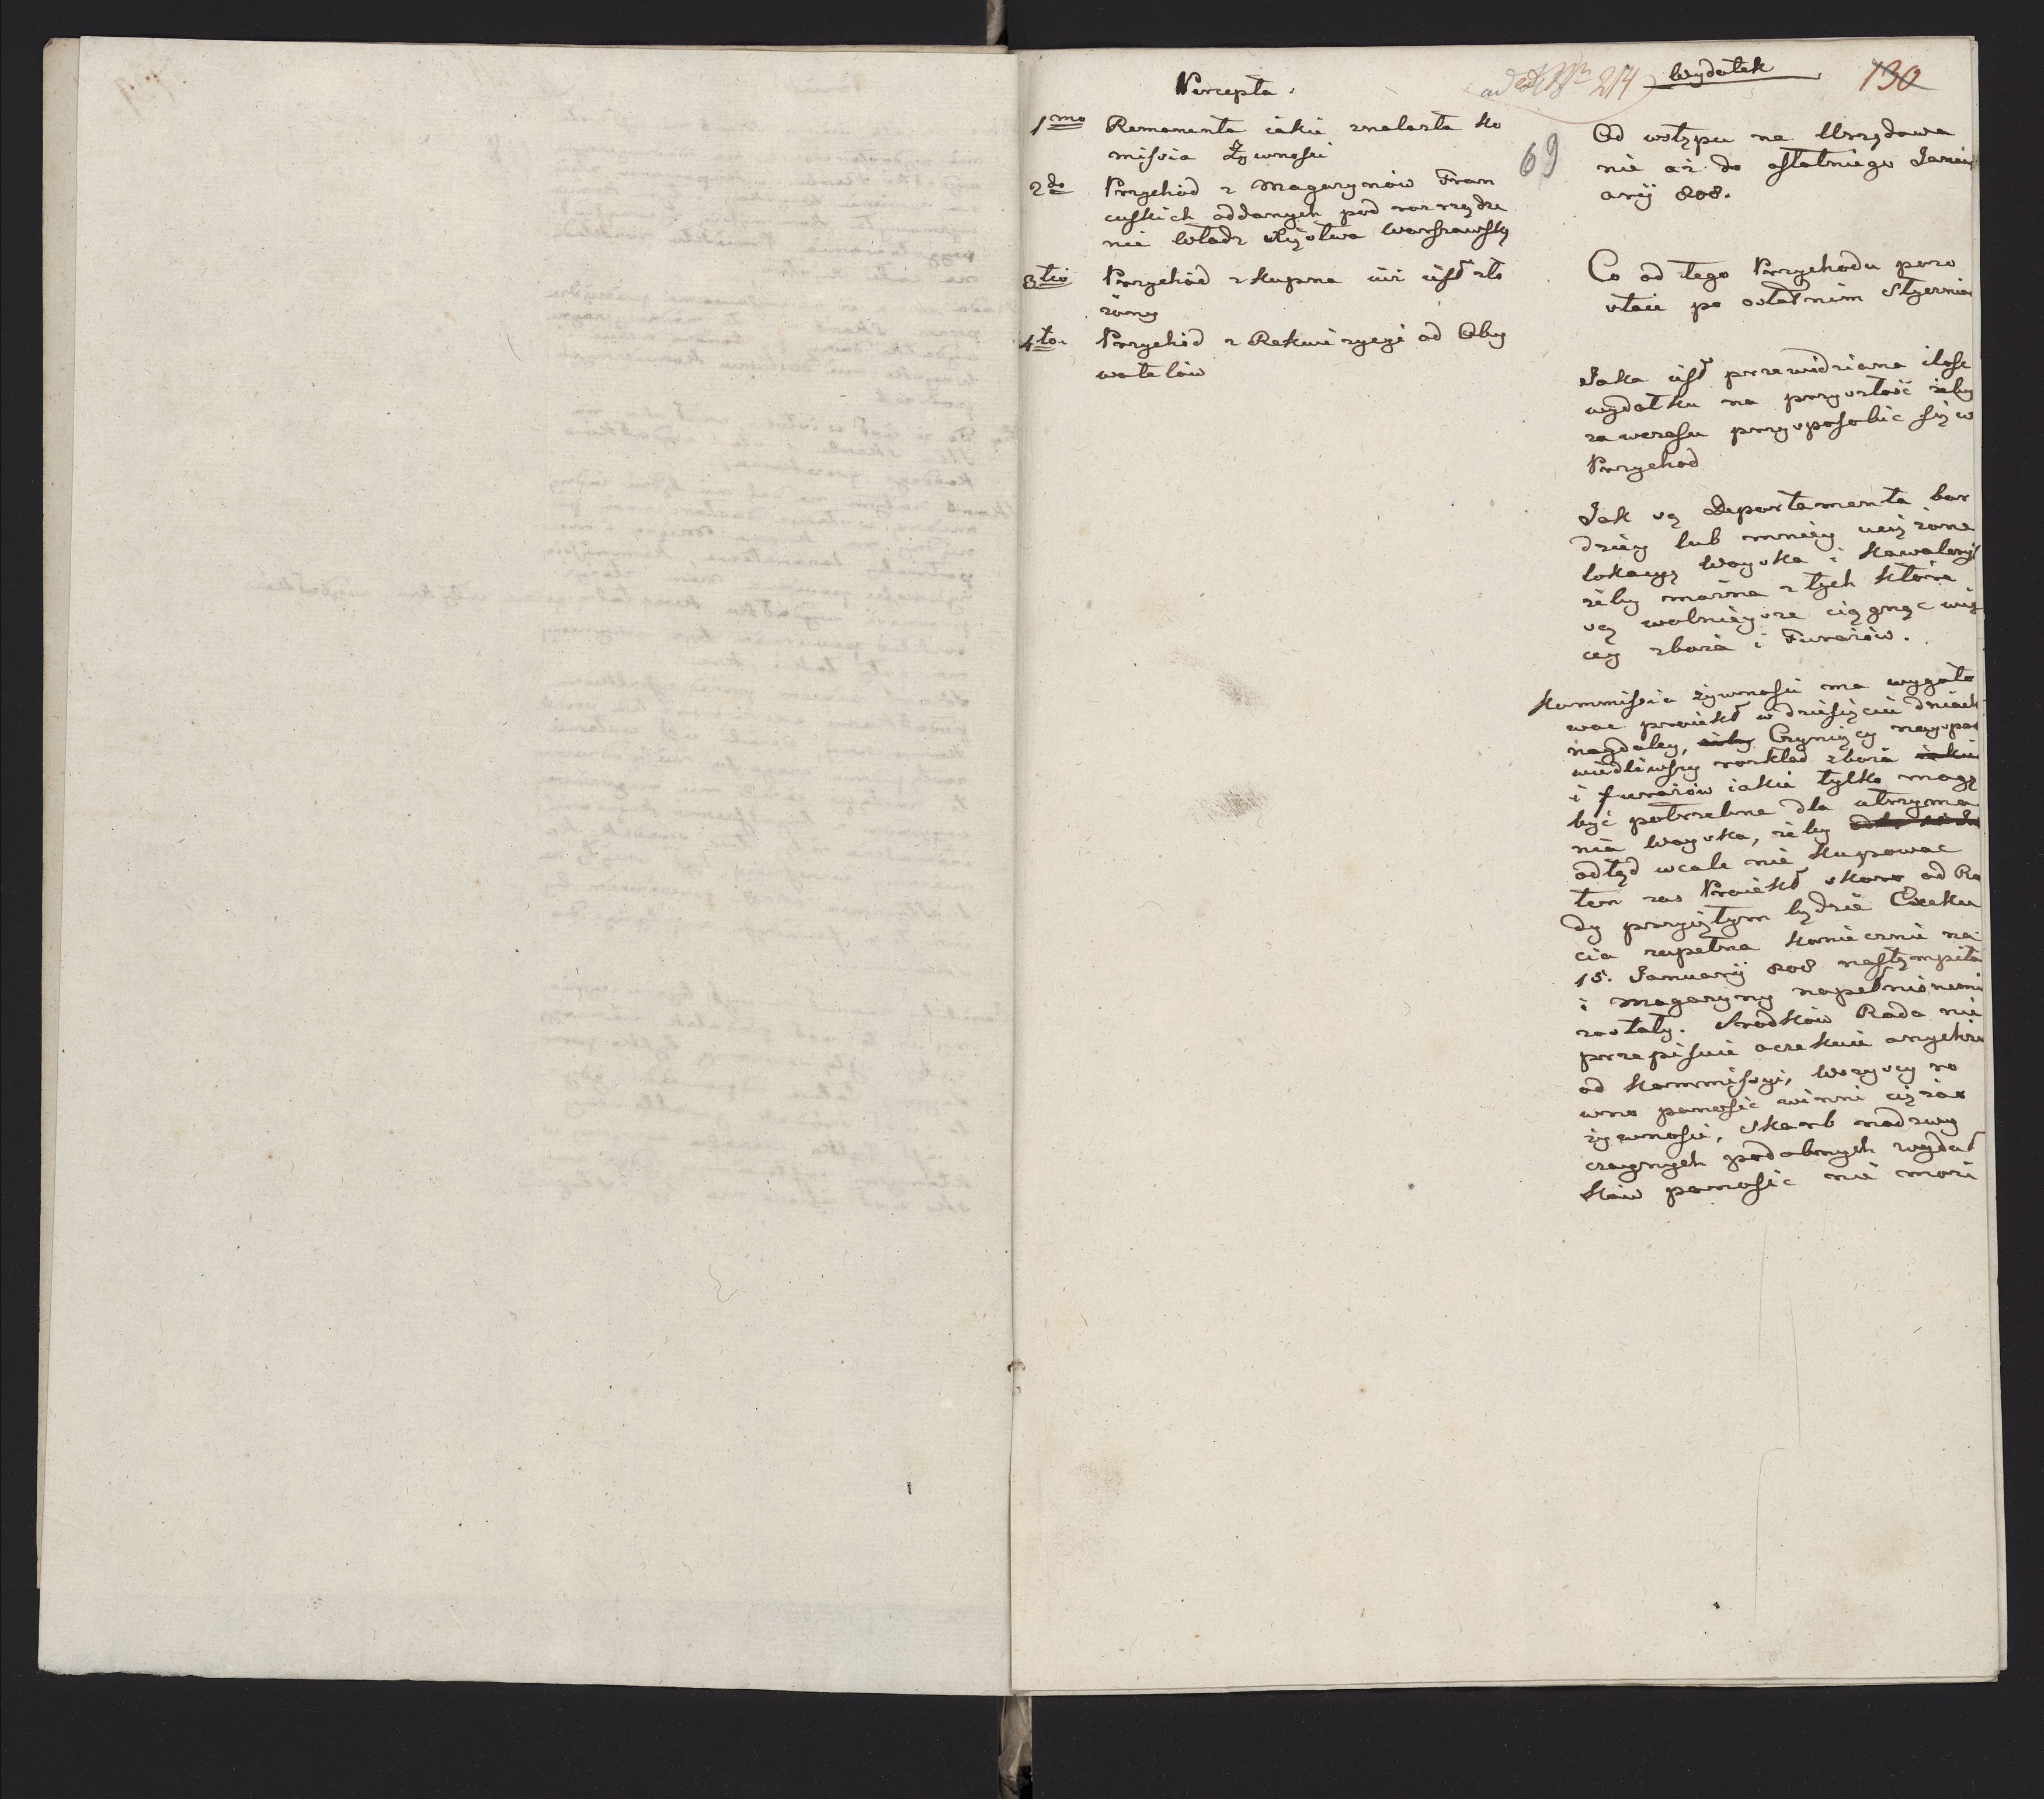 Percepta.
1mo Remanenta iakie znalazła Ko
missia Żywnosci
2do Przychód z Magazynów Fran
cuskich oddanych pod rozrządze
nie Władz Xięstwa Warszawsk
3tio Przychód z kupna iuż iest zło
żony
4to. Przychód z Rekwizycyi od Oby
watelów
ad Nrm 214
Wydatek
130
69
Od wstępu na Urzędowa
nie aż do ostatniego Janu
arij 808.
Co od tego Przychodu pozo
staie po ostatnim Stycznia
Jaka iest przewidziana ilosc
wydatku na przyszłość żeby
zawczasu przysposobic się w
Przychod
Jak są Departamenta bar
dziey lub mniey uciążone
lokacyą Woyska i Kawaleryi
żeby można z tych które
są wolnieysze ciągnąc wię
cey zboża i Furażów.
Kommissia żywnosci ma wygoto
wac proiekt w dziesięciu dniach
naydaley, żeby Czyniący nayspra
wiedliwszy rozkład zboża iakie
i furażów iakie tylko mogą
być potrzebne dla utrzyma
nia Woyska, żeby
odtąd wcale nie kupowac
ten zas Proiekt skoro od Ra
dy przyiętym będzie Exeku
cia zupełna koniecznie na
15. Januarij 808 nastąmpiła
i magazyny napełnionemi
zostały. Srodków Rada nie
przepisuie oczekuie onychże
od Kommissyi, Wszyscy ro
wno ponosić winni ciężar
żywnosci, Skarb nadzwy
czaynych podobnych wydat
ków ponosic nie może